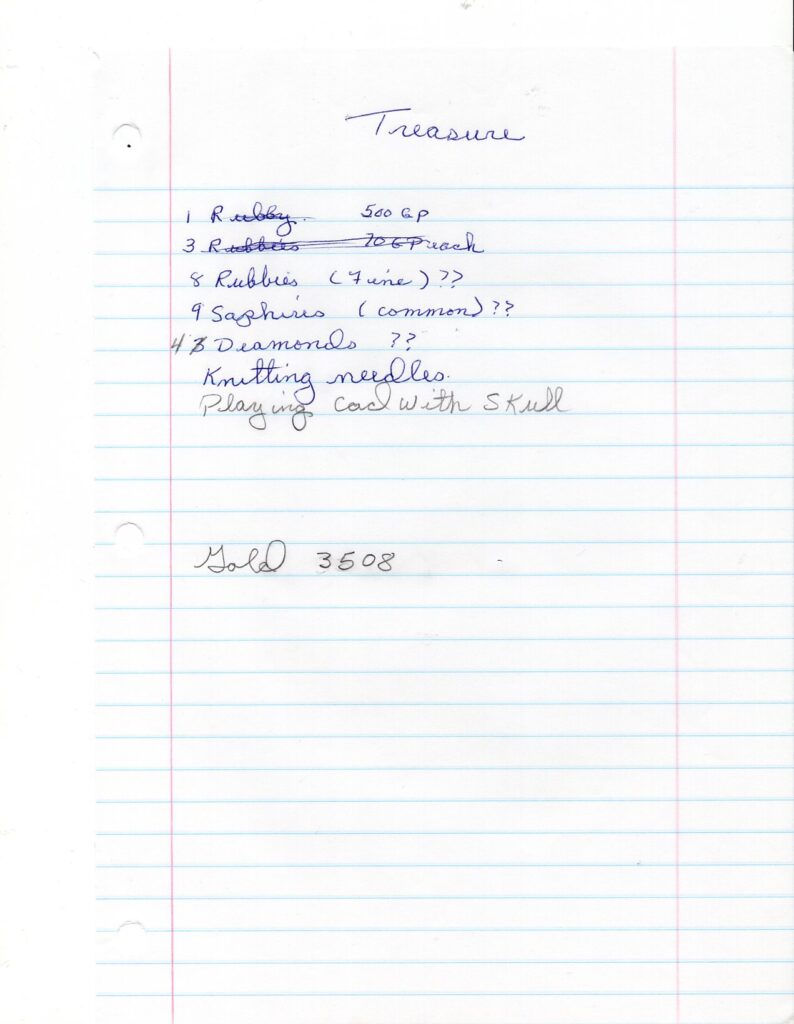 Treasure
1 Rubby 500 GP
3 Rubbies 70 GP each
8 Rubbies (Fine) ??
9 Saphires (common) ??
4 3 Deamonds ??
Knitting needles.
Playing Cad With Skull
Gold 3508